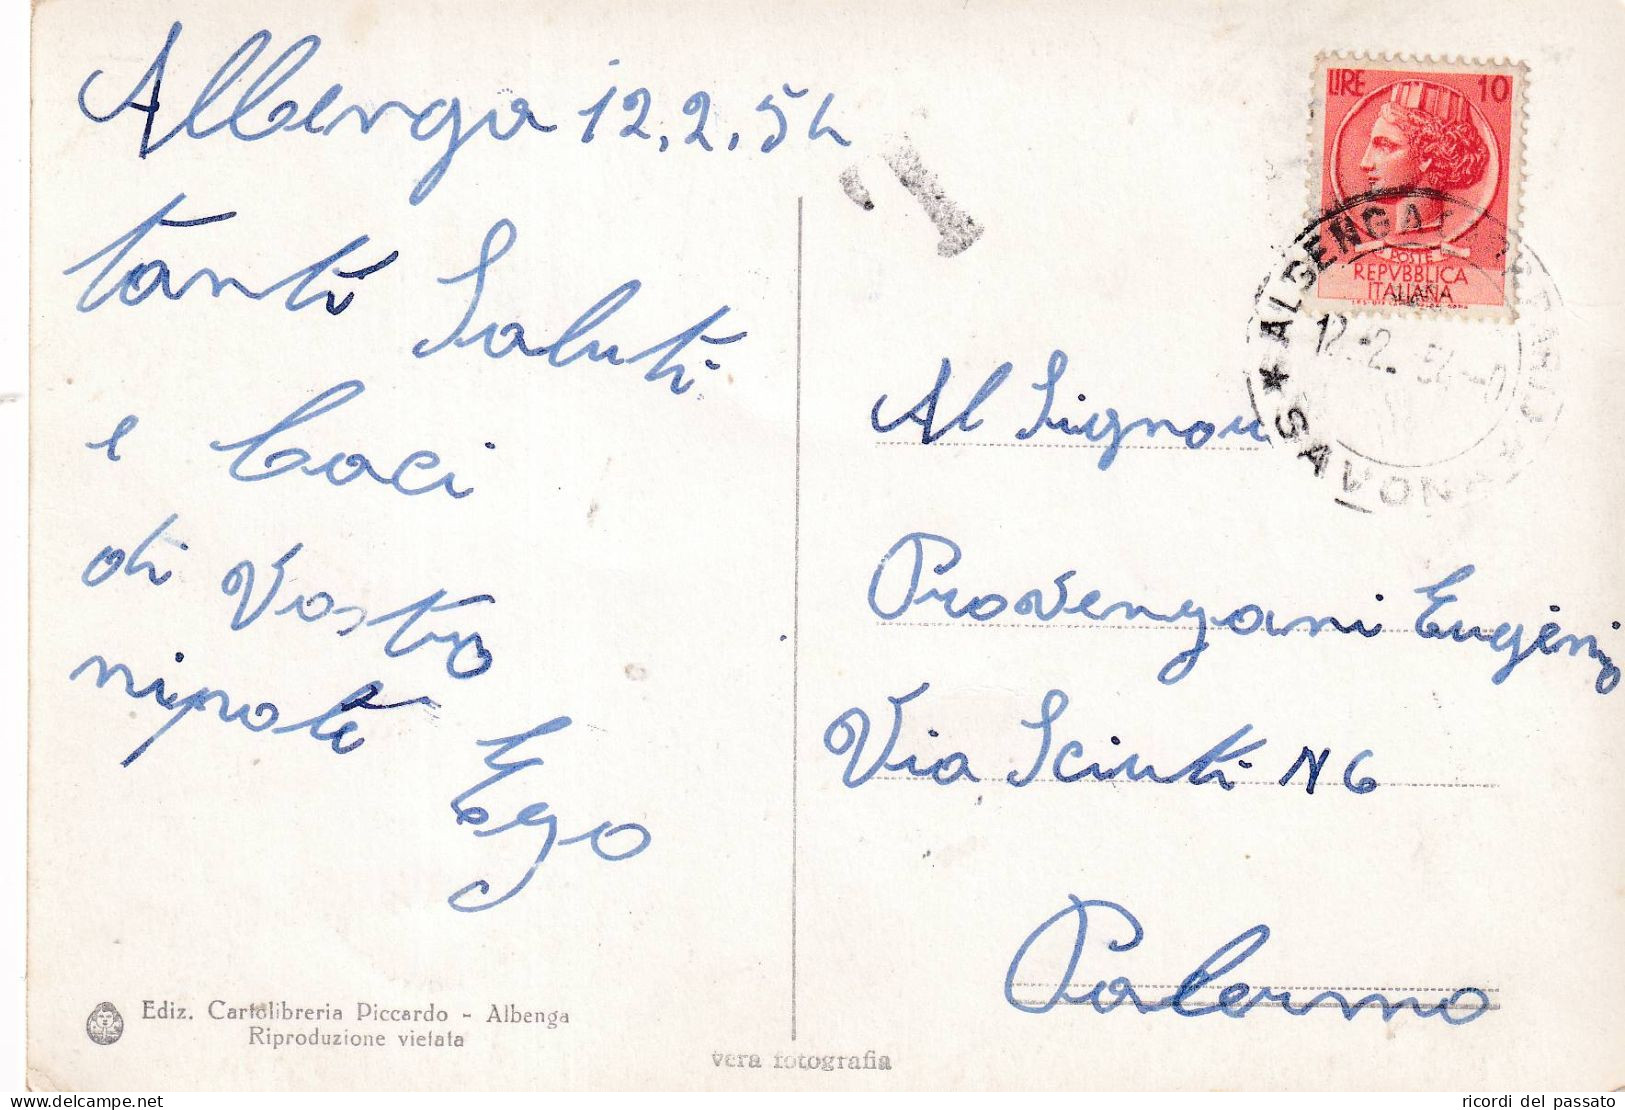 Albenga 12.2.54
tanti Saluti
e baci
di Vostro
nipote
Ego
Ediz. Cartolibreria Piccardo - Albenga
Riproduzione vietata
vera fotografia
T
LIRE 10
POSTE
REPVBBLICA
ITALIANA
ALBENGA
SAVONA
12.-2.54
Al Signor
Provenzani Eugenio
Via Sciuti N 6
Palermo
ricordi del passato